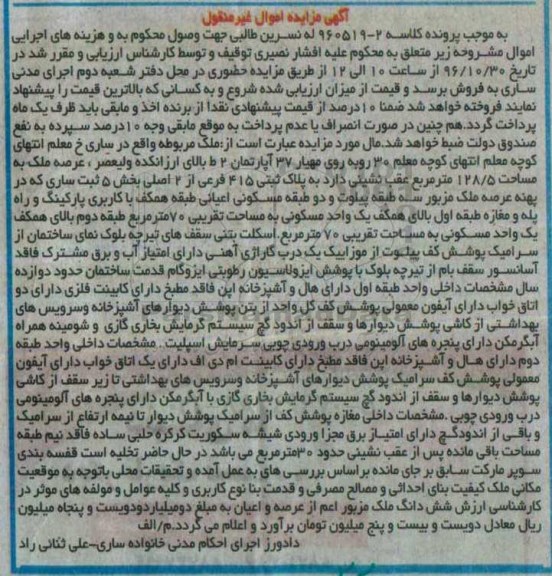 آگهی مزایده اموال غیرمنقول
به موجب پرونده کلاسه ۲-۹۶۰۵۱۹ له نسرین طالبی جهت وصول محکوم به و هزینه های اجرایی
اموال مشروحه زیر متعلق به محکوم علیه افشار نصیری توقیف و توسط کارشناس ارزیابی و مقرر شد در
تاریخ ۹۶/۱۰/۳۰ از ساعت ۱۰ الی ۱۲ از طریق مزایده حضوری در محل دفتر شعبه دوم اجرای مدنی
ساری به فروش برسد و قیمت از میزان ارزیابی شده شروع و به کسانی که بالاترین قیمت را پیشنهاد
نمایند فروخته خواهد شد ضمنا ۱۰درصد از قیمت پیشنهادی نقدا از برنده اخذ و مابقی باید ظرف یک ماه
پرداخت گردد.هم چنین در صورت انصراف یا عدم پرداخت به موقع مابقی وجه ۱۰درصد سپرده به نفع
صندوق دولت ضبط خواهد شد.مال مورد مزایده عبارت است از:ملک مربوطه واقع در ساری خ معلم انتهای
کوچه معلم انتهای کوچه معلم ۳۰ روبه روی مهیار ۳۷ آپارتمان ۲ ط بالای ارزانکده ولیعصر ، عرصه ملک به
مساحت ۱۲۸/۵ مترمربع عقب نشینی دارد به پلاک ثبتی ۴۱۵ فرعی از ۲ اصلی بخش ۵ ثبت ساری که در
پهنه عرصه ملک مزبور سه طبقه پیلوت و دو طبقه مسکونی اعیانی طبقه همکف با کاربری پارکینگ و راه
پله و مغازه طبقه اول بالای همکف یک واحد مسکونی به مساحت تقریبی ۷۰مترمربع طبقه دوم بالای همکف
یک واحد مسکونی به مساحت تقریبی ۷۰ مترمربع.اسکلت بتنی سقف های تیرچه بلوک نمای ساختمان از
سرامیک پوشش کف پیلوت از موزاییک یک درب گاراژی آهنی دارای امتیاز آب و برق مشترک فاقد
آسانسور سقف بام از تیرچه بلوک با پوشش ایزولاسیون رطوبتی ایزوگام قدمت ساختمان حدود دوازده
سال مشخصات داخلی واحد طبقه اول دارای هال و آشپزخانه اپن فاقد مطبخ دارای کابینت فلزی دارای دو
اتاق خواب دارای آیفون معمولی پوشش کف کل واحد از بتن پوشش دیوارهای آشپزخانه وسرویس های
بهداشتی از کاشی پوشش دیوارها و سقف از اندود گچ سیستم گرمایش بخاری گازی و شومینه همراه
آبگرمکن دارای پنجره های آلومینومی درب ورودی چوبی سرمایش اسپلیت . مشخصات داخلی واحد طبقه
دوم دارای هال و آشپزخانه اپن فاقد مطبخ دارای کابینت ام دی اف دارای یک اتاق خواب دارای آیفون
معمولی پوشش کف سرامیک پوشش دیوارهای آشپزخانه وسرویس های بهداشتی تا زیر سقف از کاشی
پوشش دیوارها و سقف از اندود گچ سیستم گرمایش بخاری گازی با آبگرمکن دارای پنجره های آلومینومی
درب ورودی چوبی .مشخصات داخلی مغازه پوشش کف از سرامیک پوشش دیوار تا نیمه ارتفاع از سرامیک
و باقی از اندودگچ دارای امتیاز برق مجزا ورودی شیشه سکوریت کرکره حلبی ساده فاقد نیم طبقه
مساحت باقی مانده پس از عقب نشینی حدود ۳۰مترمربع می باشد در حال حاضر تخلیه است قفسه بندی
سوپر مارکت سابق بر جای مانده بر اساس بررسی های به عمل آمده و تحقیقات محلی باتوجه به موقعیت
مکانی ملک کیفیت بنای احداثی و مصالح مصرفی و قدمت بنا نوع کاربری و کلیه عوامل و مولفه های موثر در
کارشناسی ارزش شش دانگ ملک مزبور اعم از عرصه و اعیان به مبلغ دومیلیاردودویست و پنجاه میلیون
ریال معادل دویست و بیست و پنج میلیون تومان برآورد و اعلام می گردد.م/الف
دادورز اجرای احکام مدنی خانواده ساری-علی ثنائی راد